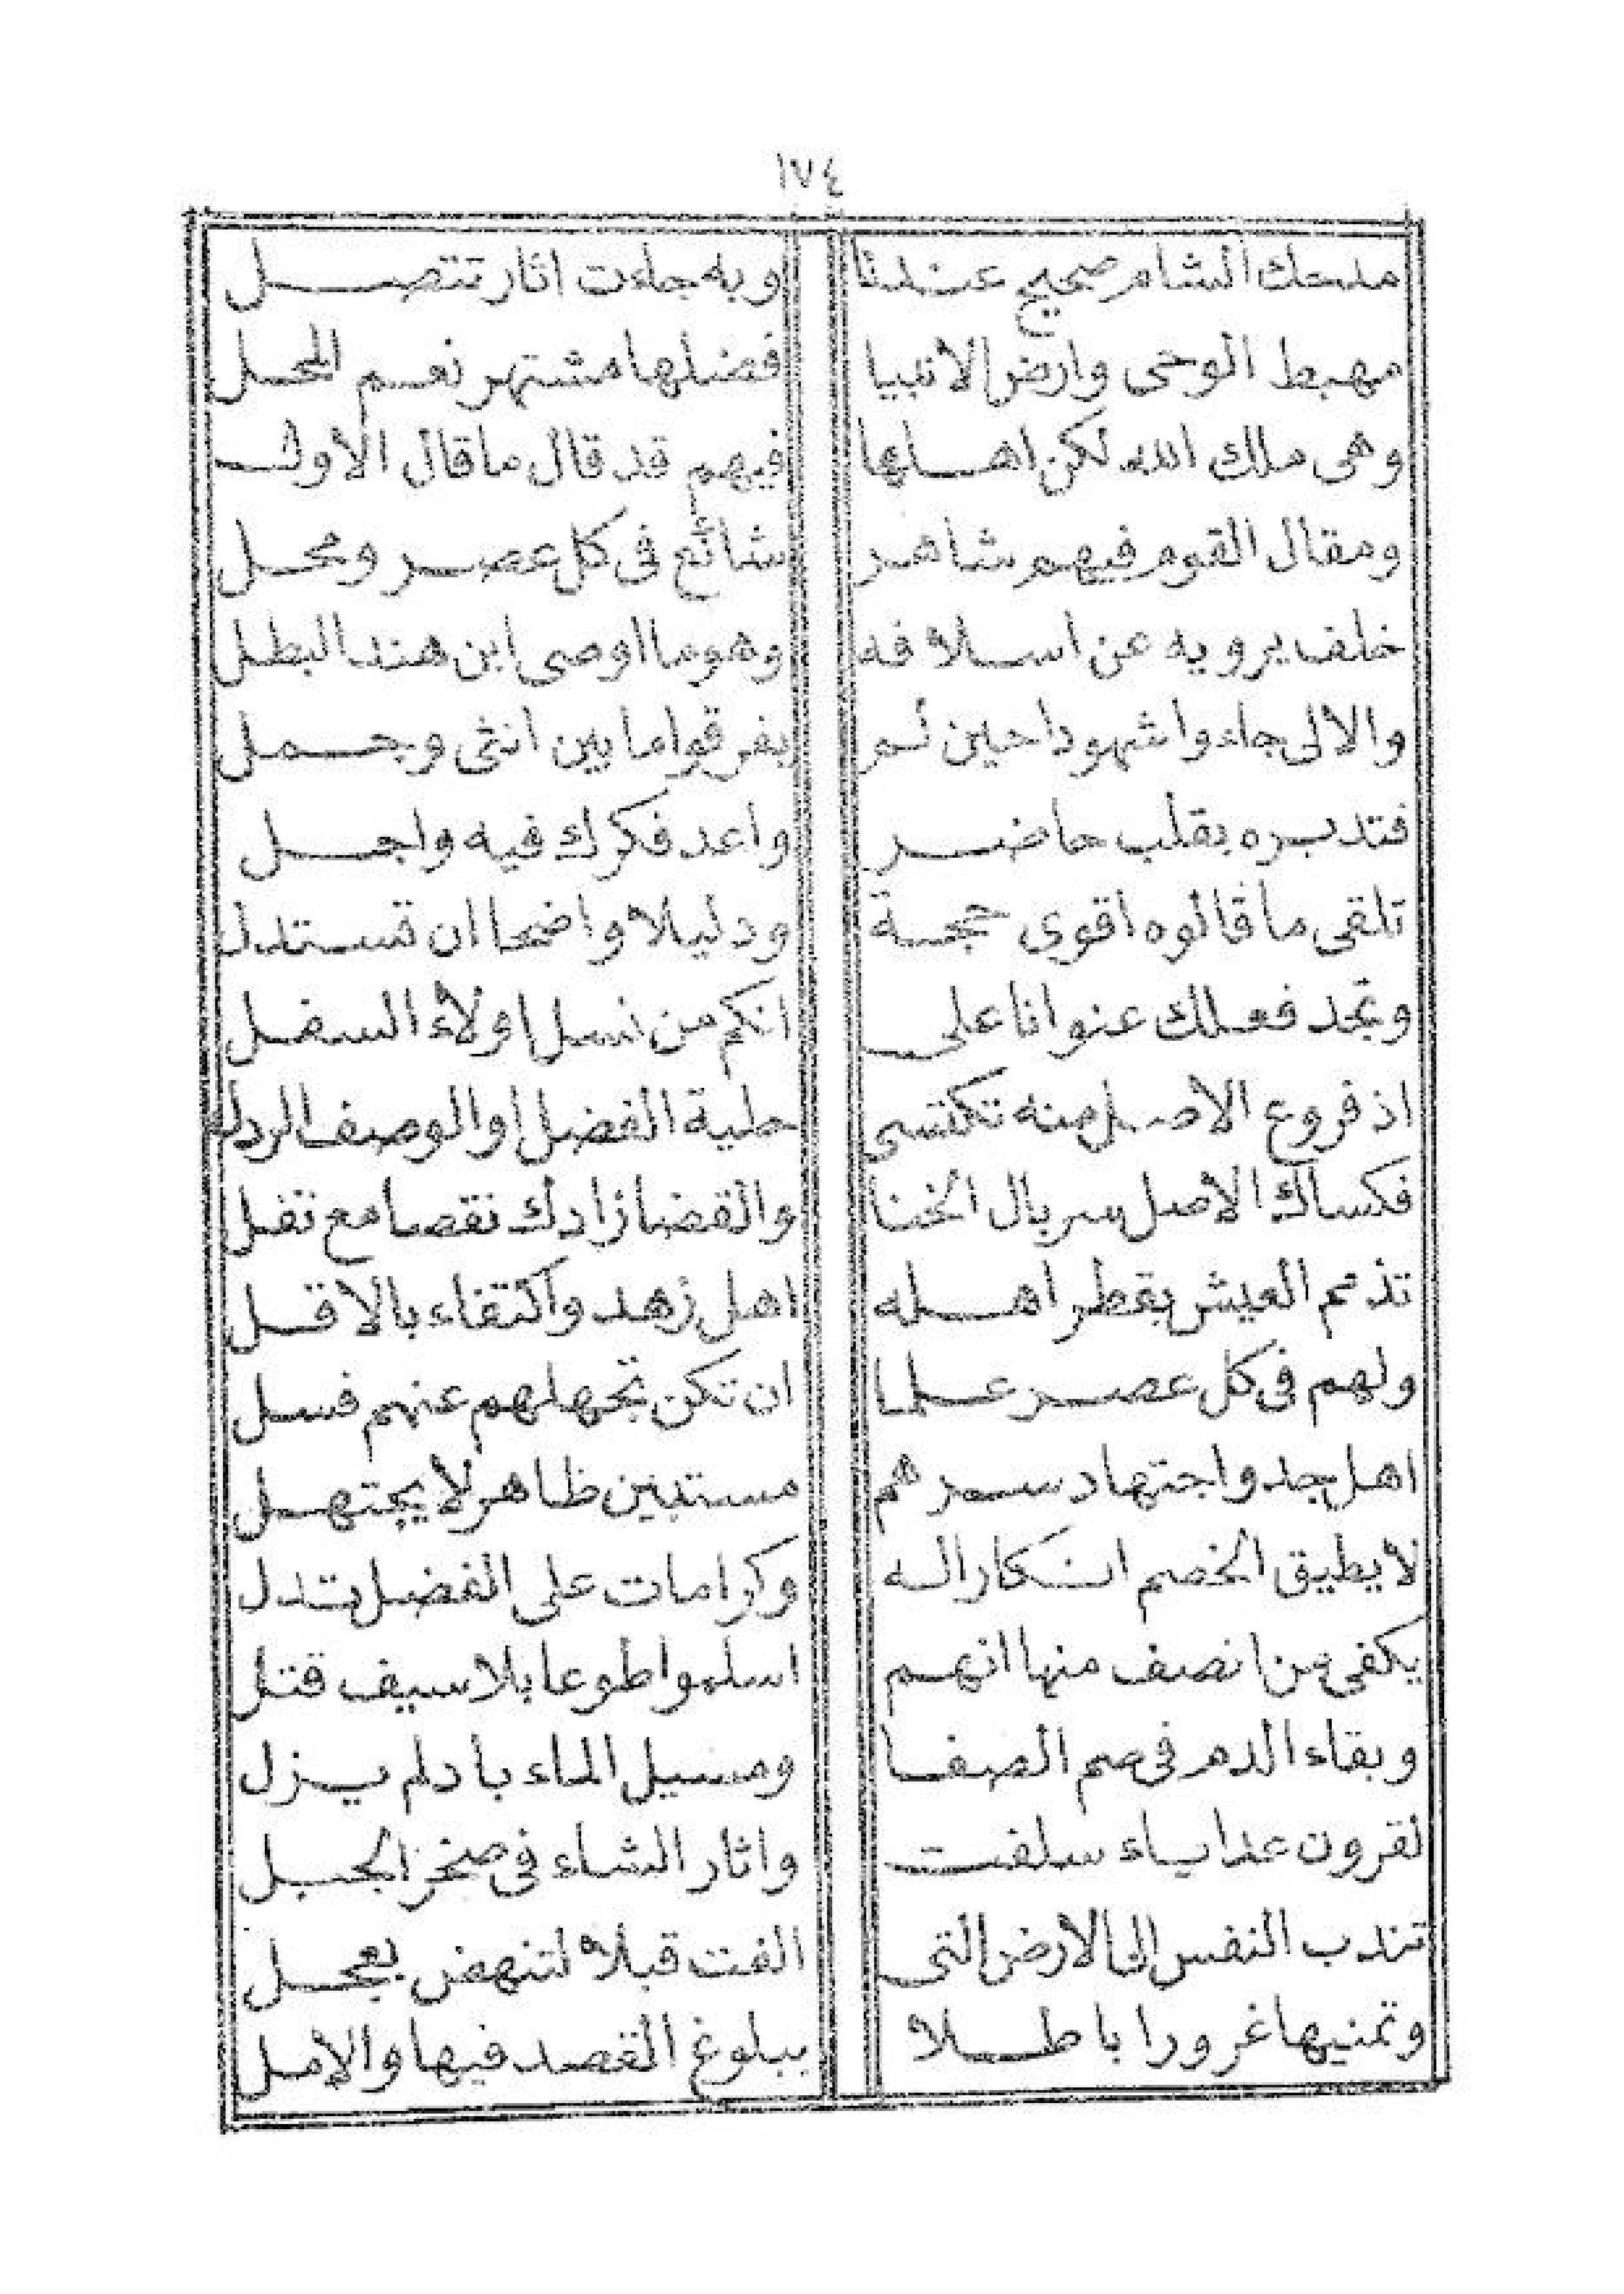 ١٧٤
مدحك الشام صحيح عندنا وبه جاءت اثار تتصل
مهبط الوحى وارض الانبيا فضلها مشتهر نعم المحل
وهى ملك الله لكن اهلها فيهم قد قال ما قال الاول
ومقال القوم فيهم شاهر شائع فى كل عصر ومحل
خلف يرويه عن اسلافه وهو ما اوصى ابن هند البطل
والالى جاءوا شهودا حين لم يفرقوا ما بين انثى وجمل
فتدبره بقلب حاضر واعد فكرك فيه واجل
تلقى ما قالوه اقوى حجة ودليلا واضحا ان تستدل
وتجد فعلك عنوانا على انكم من نسل اولاء السفل
اذ فروع الاصل منه تكتسى حلية الفضل او الوصف الرذل
فكساك الاصل سربال الخنا والقضا زادك نقصا مع نفل
تذمم العيش بقطر اهله اهل زهد واكتفاء بالاقل
ولهم فى كل عصر علما ان تكن تجهلهم عنهم فسل
اهل جد واجتهاد سرهم مستبين ظاهر لا يجتهل
لا يطيق الخصم انكارا له وكرامات على الفضل تدل
يكفى من انصف منها انهم اسلموا طوعا بلا سيف قتل
وبقاء الدهر فى صم الصفا ومسيل الماء باد لم يزل
لقرون عدا ياء سلفت واثار الشاء فى صخر الجبل
تندب النفس الى الارض التى الفت قبلا لتنهض بعجل
وتمنيها غرورا باطلا ببلوغ القصد فيها والامل